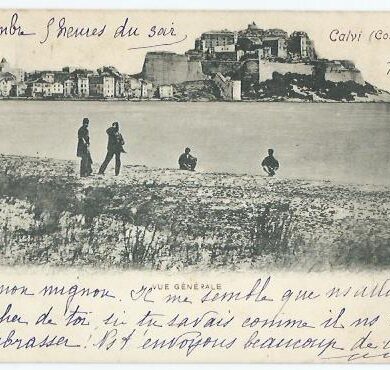 mbre 5 heures du soir
Calvi (Co
VUE GÉNÉRALE
mon mignon. Il me semble que ns allo
cher de toi, si tu savais comme il ns
mbrasser! Ns t'envoyons beaucoup de